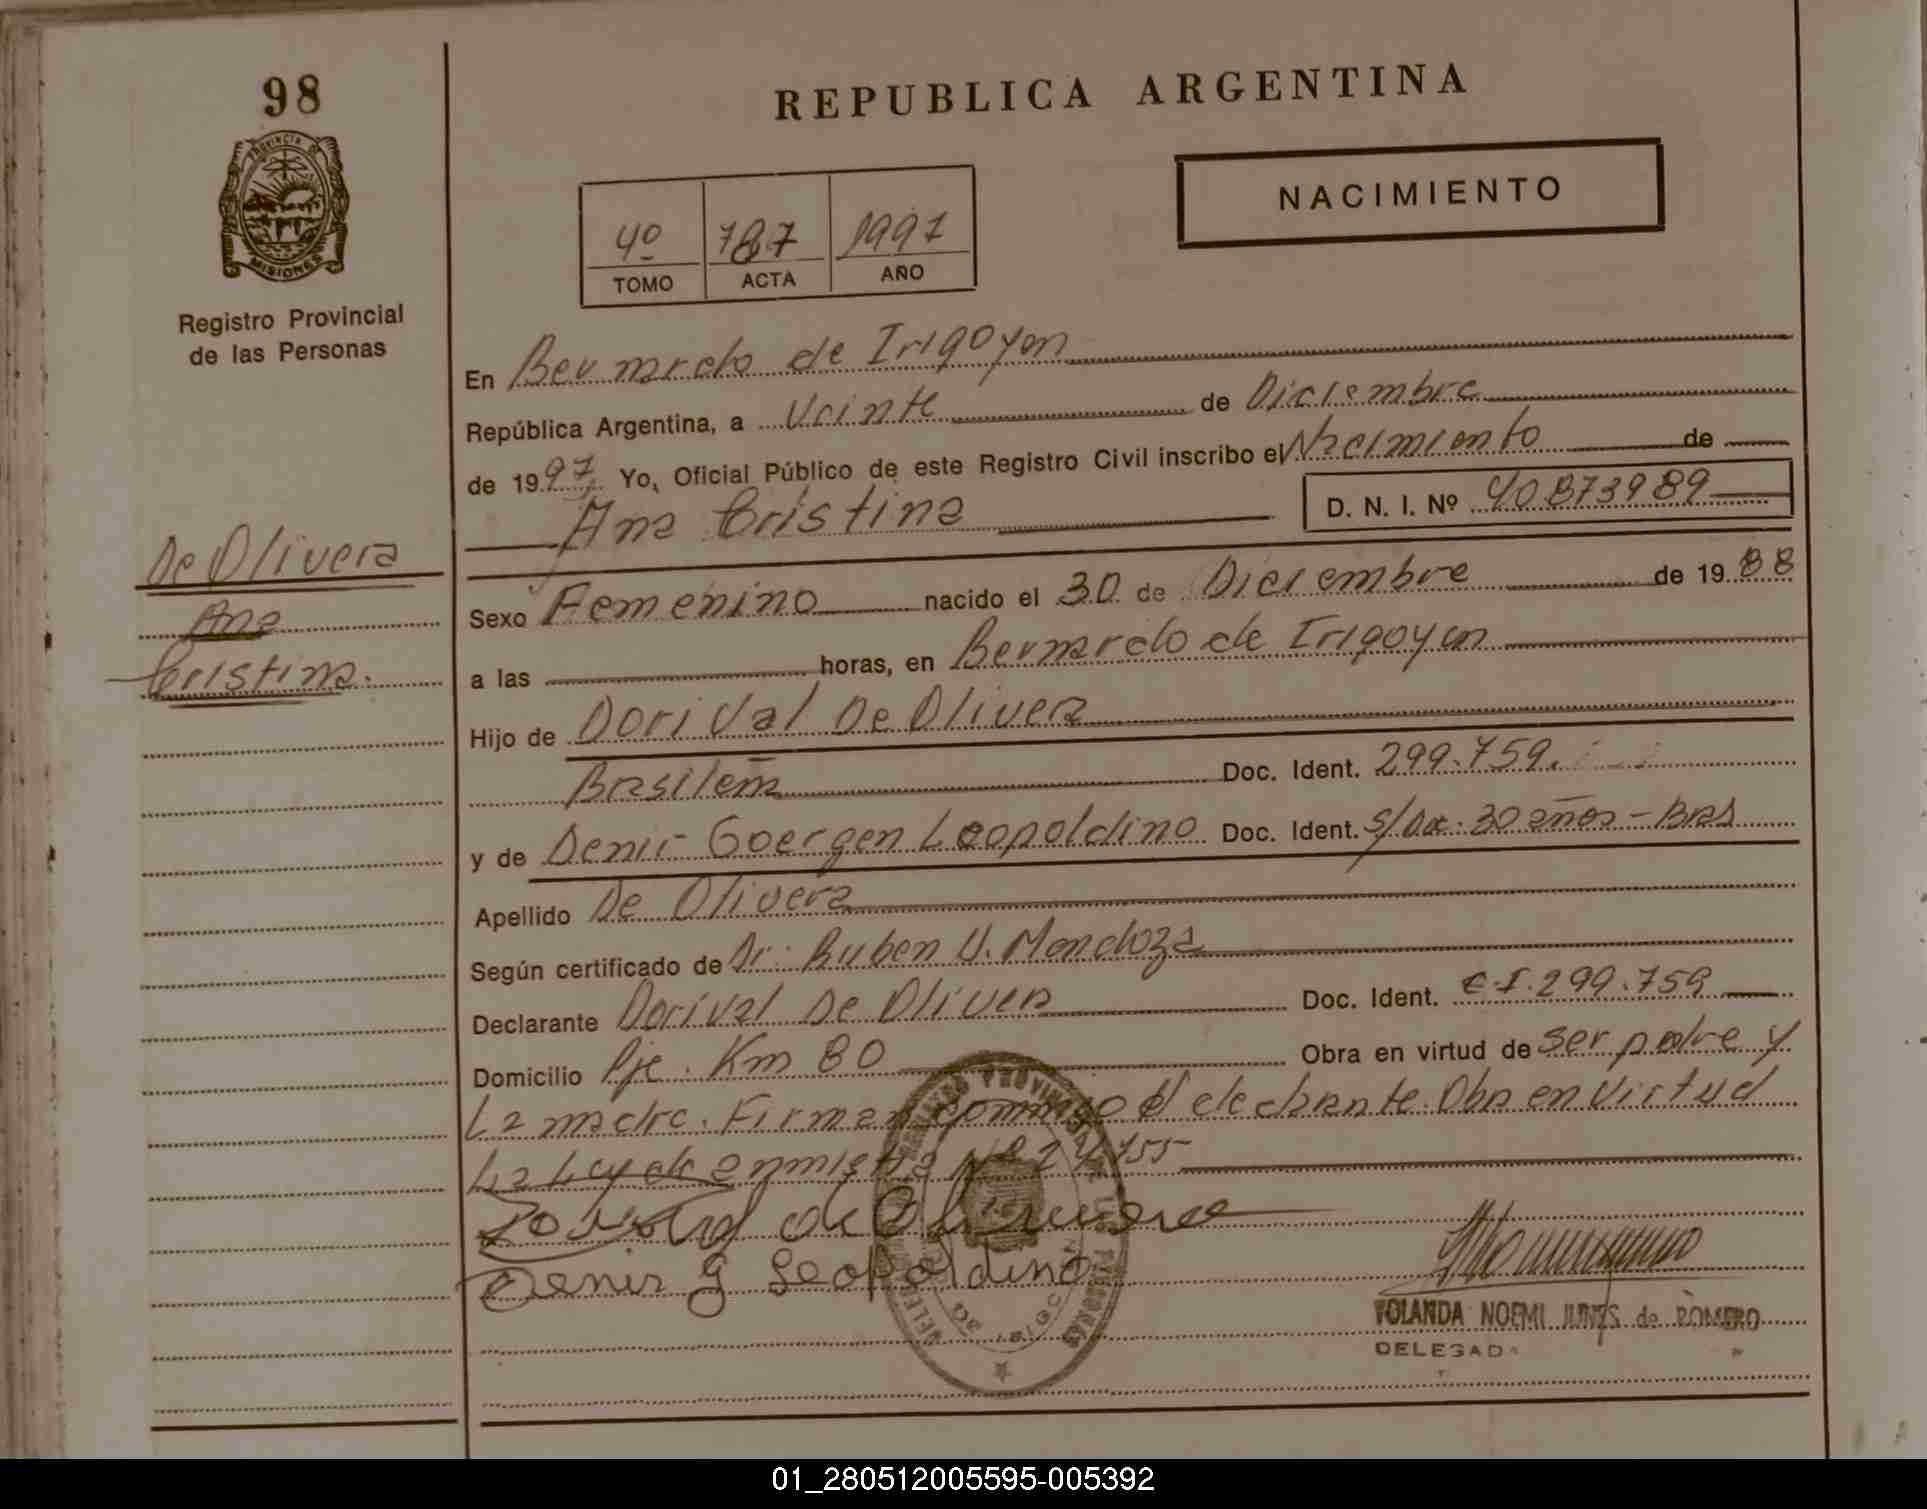 98
PROVINCIA DE
MISIONES
Registro Provincial
de las Personas
De Olivera
Ana
Cristina.
REPUBLICA ARGENTINA
NACIMIENTO
4º 787 1997
TOMO ACTA AÑO
En Bernardo de Irigoyen
República Argentina, a Veinte de Diciembre
de 1997, Yo, Oficial Público de este Registro Civil inscribo el Nacimiento de
Ana Cristina D. N. I. Nº 40873989
Sexo Femenino nacido el 30 de Diciembre de 1988
a las horas, en Bernardo de Irigoyen
Hijo de Dorival De Olivera
Brasileña Doc. Ident. 299.759.
y de Denir Goergen Leopoldino Doc. Ident. S/Doc. 30 años - Bras
Apellido De Olivera
Según certificado de Dr. Ruben U. Mendoza
Declarante Dorival De Olivera Doc. Ident. C.I. 299.759
Domicilio Pje. Km 80 Obra en virtud de ser padre y
La madre. Firman conmigo el declarante. Obra en Virtud
La Ley de Amnistia Nº 24.755
Dorival de Oliveira
Denir G Leopoldino
YOLANDA NOEMI de ROMERO
DELEGADA
01_280512005595-005392